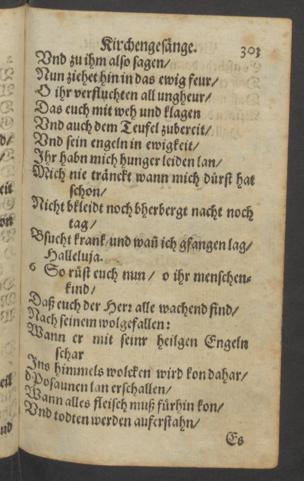 Kirchengesänge. 303
Vnd zu ihm also sagen/
Nun ziehet hin in das ewig feur/
O ihr verfluchten all ungheur/
Das euch mit weh und klagen
Vnd auch dem Teufel zubereit/
Vnd sein engeln in ewigkeit/
Ihr habn mich hunger leiden lan/
Mich nie tränckt wann mich dürst hat
schon/
Nicht bkleidt noch bherbergt nacht noch
tag/
Bsucht krank/ und wañ ich gfangen lag/
Halleluja.
6 So rüst euch nun/ o ihr menschen-
kind/
Daß euch der Herr alle wachend find/
Nach seinem wolgefallen:
Wann er mit seinr heilgen Engeln
schar
Ins himmels wolcken wird kon dahar/
d'Posaunen lan erschallen/
Wann alles fleisch muß fürhin kon/
Vnd todten werden auferstahn/
Es